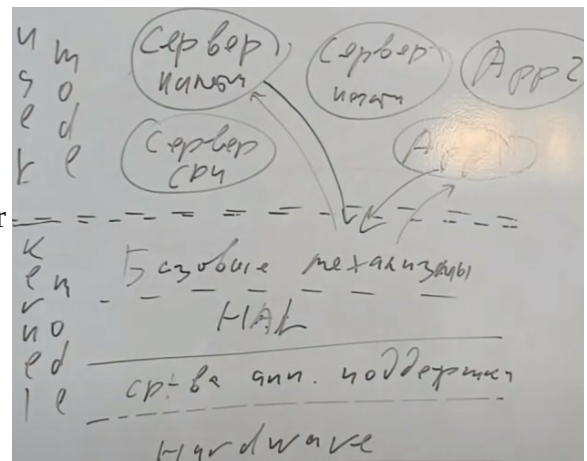 user mode
Сервер памяти
Сервер
App2
Сервер
App
r
kernel mode
Базовые механизмы
HAL
ср-ва апп. поддержки
Hardware